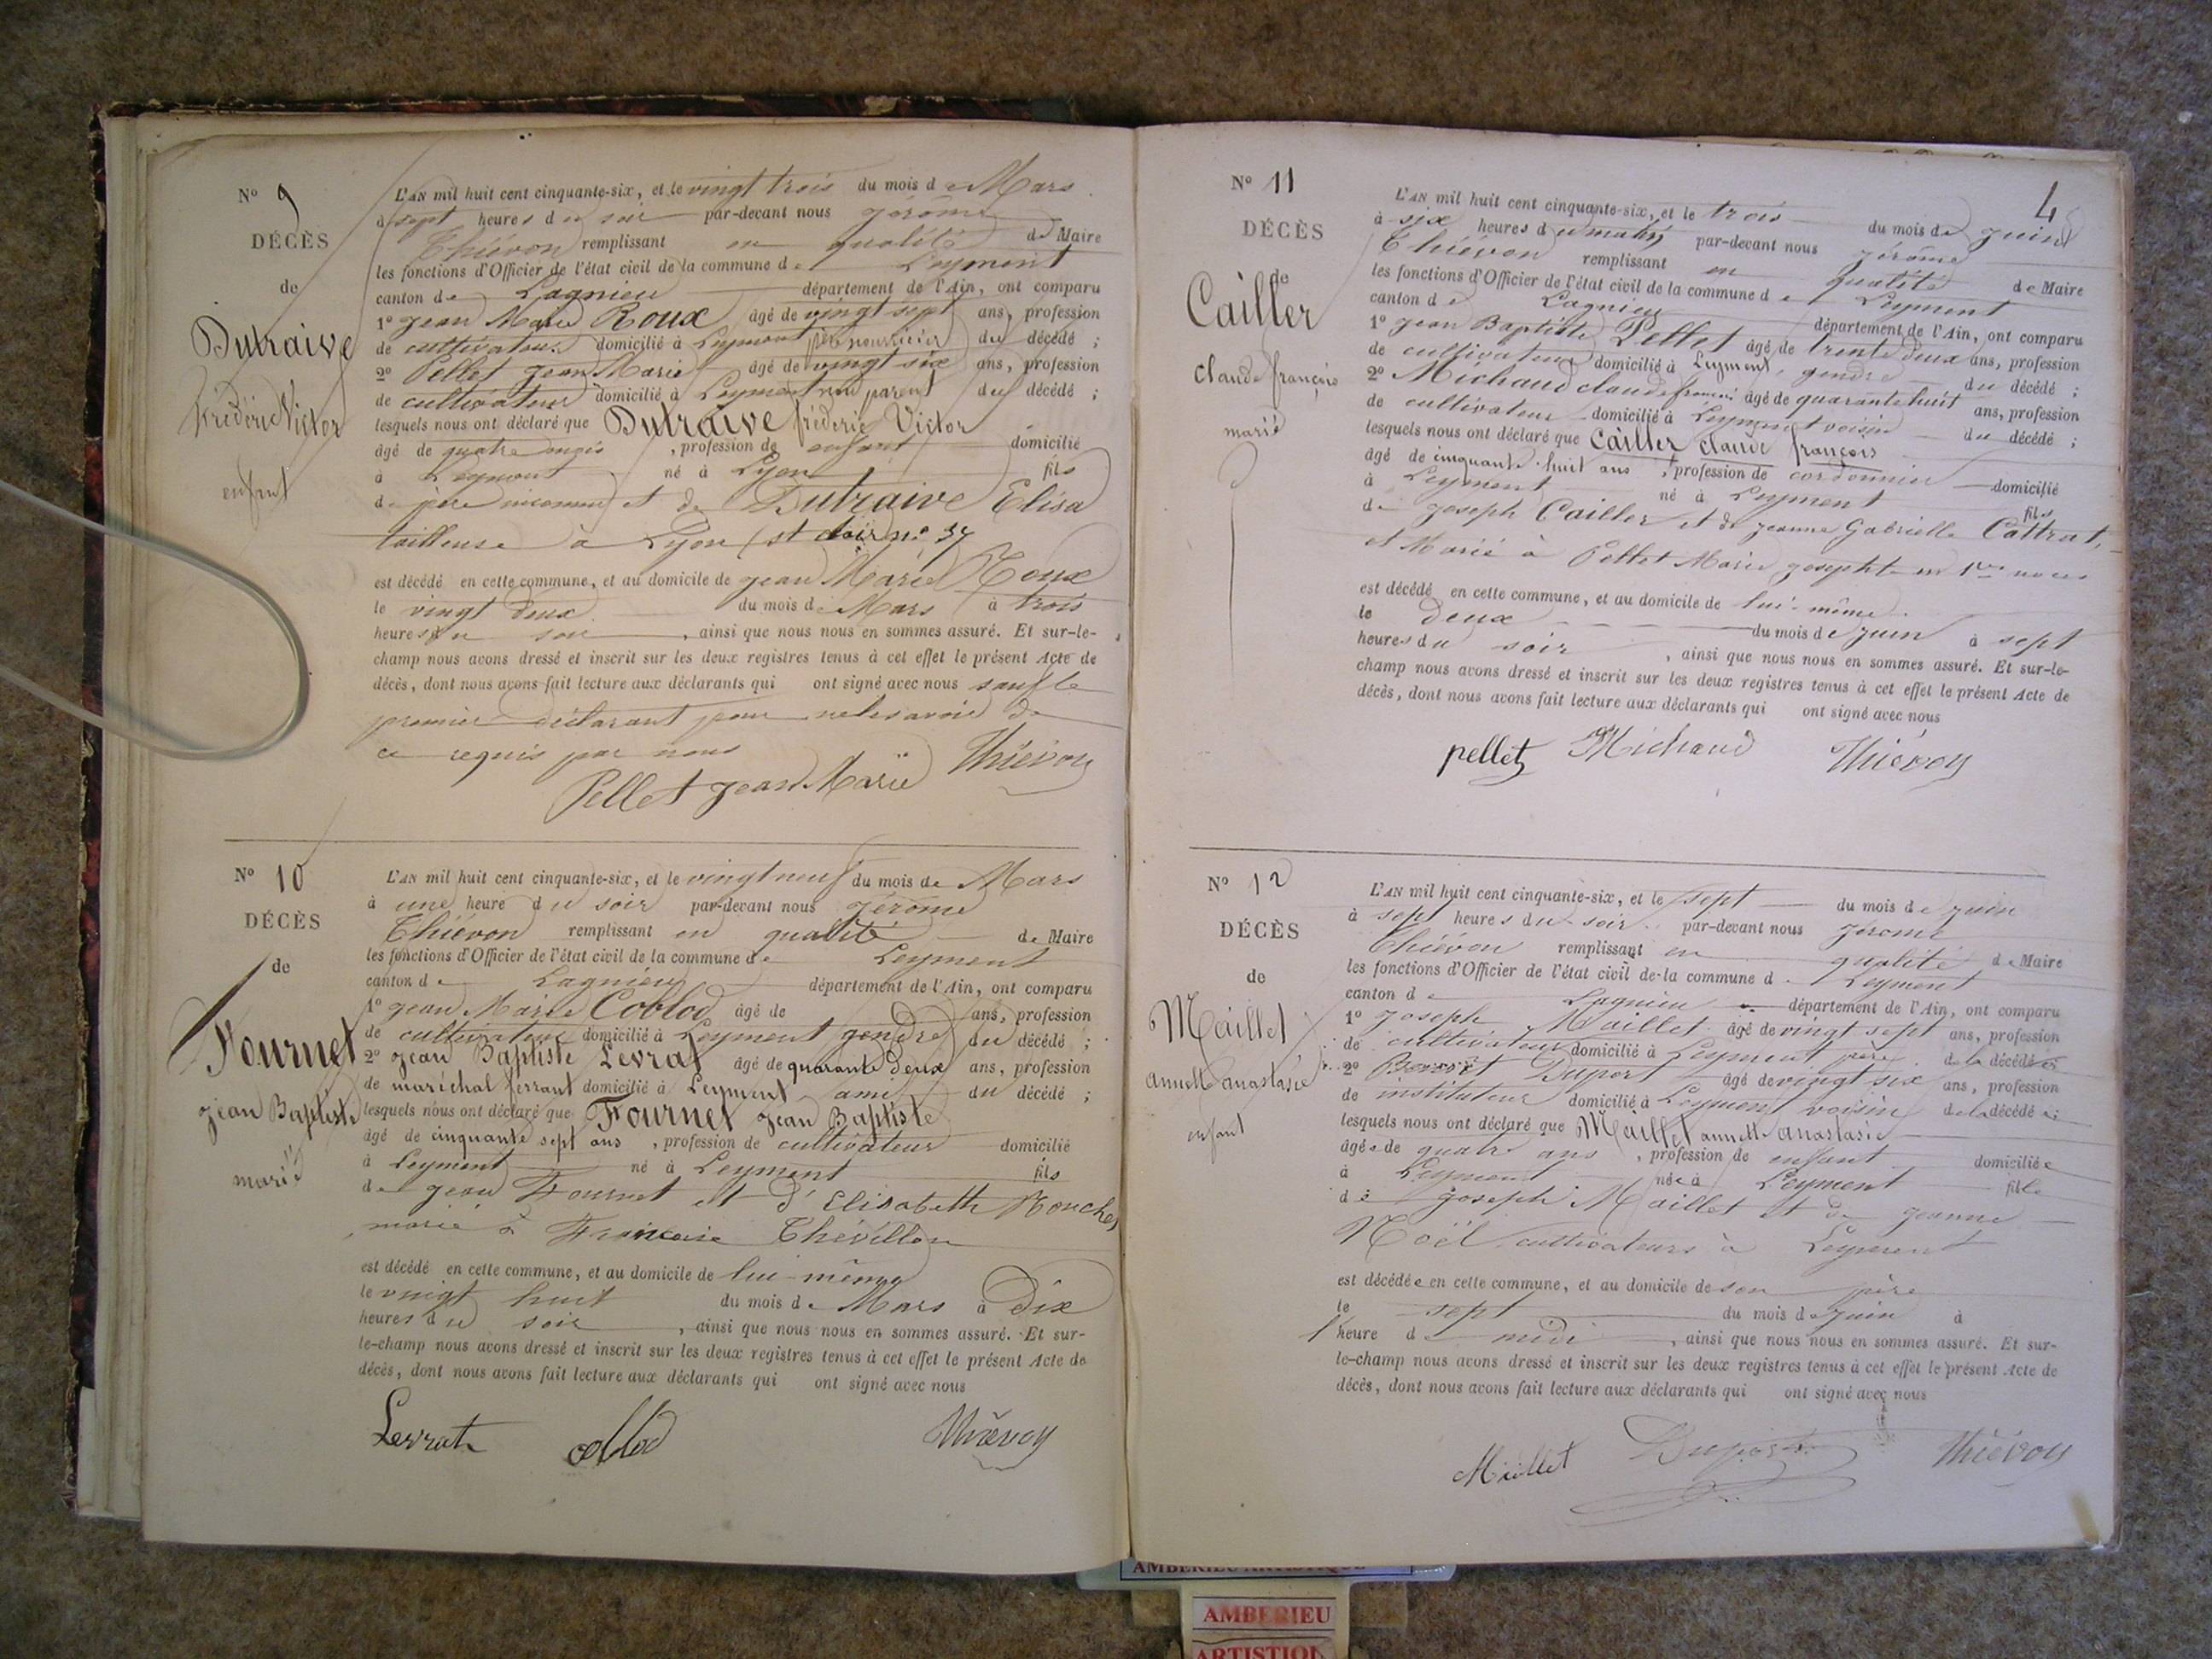 N° 9
DÉCÈS
de
Dutraive
Frédéric Victor
enfant
L'AN mil huit cent cinquante-six, et le vingt trois du mois de Mars
à sept heures du soir par-devant nous jérôme
Thiévon remplissant en qualité de Maire
les fonctions d'Officier de l'état civil de la commune de Leyment
canton de Lagnieu département de l'Ain, ont comparu
1° jean Marie Roux âgé de vingt sept ans, profession
de cultivateur domicilié à Leyment père nourricier du décédé ;
2° Pellet jean Marie âgé de vingt six ans, profession
de cultivateur domicilié à Leyment non parent du décédé ;
lesquels nous ont déclaré que Dutraive fréderic Victor
âgé de quatre mois , profession de enfant domicilié
à Leyment né à Lyon fils
de père inconnu et de Dutraive Elisa
tailleuse à Lyon (st clair n° 37
est décédé en cette commune, et au domicile de jean Marie Roux
le vingt deux du mois de Mars à trois
heures du soir , ainsi que nous nous en sommes assuré. Et sur-le-
champ nous avons dressé et inscrit sur les deux registres tenus à cet effet le présent Acte de
décès, dont nous avons fait lecture aux déclarants qui ont signé avec nous sauf le
premier déclarant pour ne le savoir de
ce requis par nous
Pellet jean Marie Thiévon
N° 10
DÉCÈS
de
Fournet
jean Baptiste
marié
L'AN mil huit cent cinquante-six, et le vingt neuf du mois de Mars
à une heure du soir par-devant nous jérôme
Thiévon remplissant en qualité de Maire
les fonctions d'Officier de l'état civil de la commune de Leyment
canton de Lagnieu département de l'Ain, ont comparu
1° jean Marie Coblod âgé de ans, profession
de cultivateur domicilié à Leyment gendre du décédé ;
2° jean Baptiste Levrat âgé de quarante deux ans, profession
de maréchal ferrant domicilié à Leyment ami du décédé ;
lesquels nous ont déclaré que Fournet jean Baptiste
âgé de cinquante sept ans , profession de cultivateur domicilié
à Leyment né à Leyment fils
de jean Fournet et d'Elisabeth
marié à Francoise Thévillon
est décédé en cette commune, et au domicile de lui-même
le vingt huit du mois de Mars à Dix
heures du soir , ainsi que nous nous en sommes assuré. Et sur-
le-champ nous avons dressé et inscrit sur les deux registres tenus à cet effet le présent Acte de
décès, dont nous avons fait lecture aux déclarants qui ont signé avec nous
Levrat coblod Thiévon
4
N° 11
DÉCÈS
de
Cailler
claude françois
marié
L'AN mil huit cent cinquante-six, et le trois du mois de juin
à six heures du matin par-devant nous jérôme
Thiévon remplissant en qualité de Maire
les fonctions d'Officier de l'état civil de la commune de Leyment
canton de Lagnieu département de l'Ain, ont comparu
1° jean Baptiste Pellet âgé de trente deux ans, profession
de cultivateur domicilié à Leyment, gendre du décédé ;
2° Michaud claude françois âgé de quarante huit ans, profession
de cultivateur domicilié à Leyment voisin du décédé ;
lesquels nous ont déclaré que Cailler claude françois
âgé de cinquante-huit ans , profession de cordonnier domicilié
à Leyment né à Leyment fils
de joseph Cailler et de jeanne Gabrielle Cattrat,
et Marié à Pellet Marie josephte en 1res noces
est décédé en cette commune, et au domicile de lui-même
le deux du mois de juin à sept
heures du soir , ainsi que nous nous en sommes assuré. Et sur-le-
champ nous avons dressé et inscrit sur les deux registres tenus à cet effet le présent Acte de
décès, dont nous avons fait lecture aux déclarants qui ont signé avec nous
pellet Michaud Thiévon
N° 12
DÉCÈS
de
Maillet
annette anastasie
enfant
L'AN mil huit cent cinquante-six, et le sept du mois de juin
à sept heures du soir par-devant nous jérome
Thiévon remplissant en qualité de Maire
les fonctions d'Officier de l'état civil de la commune de Leyment
canton de Lagnieu département de l'Ain, ont comparu
1° joseph Maillet âgé de vingt sept ans, profession
de cultivateur domicilié à Leyment père de la décédée
2° Benoit Duport âgé de vingt six ans, profession
de instituteur domicilié à Leyment voisin de la décédée ;
lesquels nous ont déclaré que Maillet annette anastasie
âgée de quatre ans , profession de enfant domiciliée
à Leyment née à Leyment fille
de joseph Maillet et de jeanne
Noël cultivateurs à Leyment
est décédée en cette commune, et au domicile de son père
le sept du mois de juin à
1 heure de midi , ainsi que nous nous en sommes assuré. Et sur-
le-champ nous avons dressé et inscrit sur les deux registres tenus à cet effet le présent Acte de
décès, dont nous avons fait lecture aux déclarants qui ont signé avec nous
Maillet Duport Thiévon
AMBERIEU ARTISTIQUE
AMBERIEU